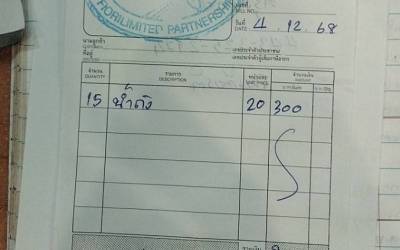 RORILIMITED PARTNERSHIP
วันที่ 4 . 12 . 68
นามลูกค้า
ที่อยู่
เลขประจำตัวประชาชน
เลขประจำตัวผู้เสียภาษีอากร
จำนวน รายการ หน่วยละ จำนวนเงิน
QUANTITY DESCRIPTION UNIT PRICE AMOUNT
15 น้ำถัง 20 300